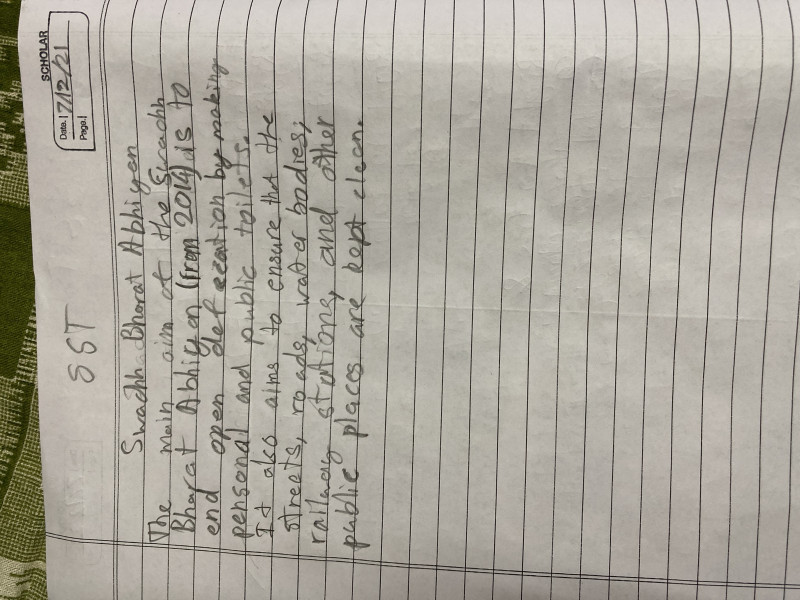 SCHOLAR
Date. 7/12/21
Page.
SST
Swachh Bharat Abhiyan
The main aim of the Swachh
Bharat Abhiyan (from 2014) is to
end open defecation by making
personal and public toilets.
It also aims to ensure that the
streets, roads, water bodies,
railway stations, and other
public places are kept clean.